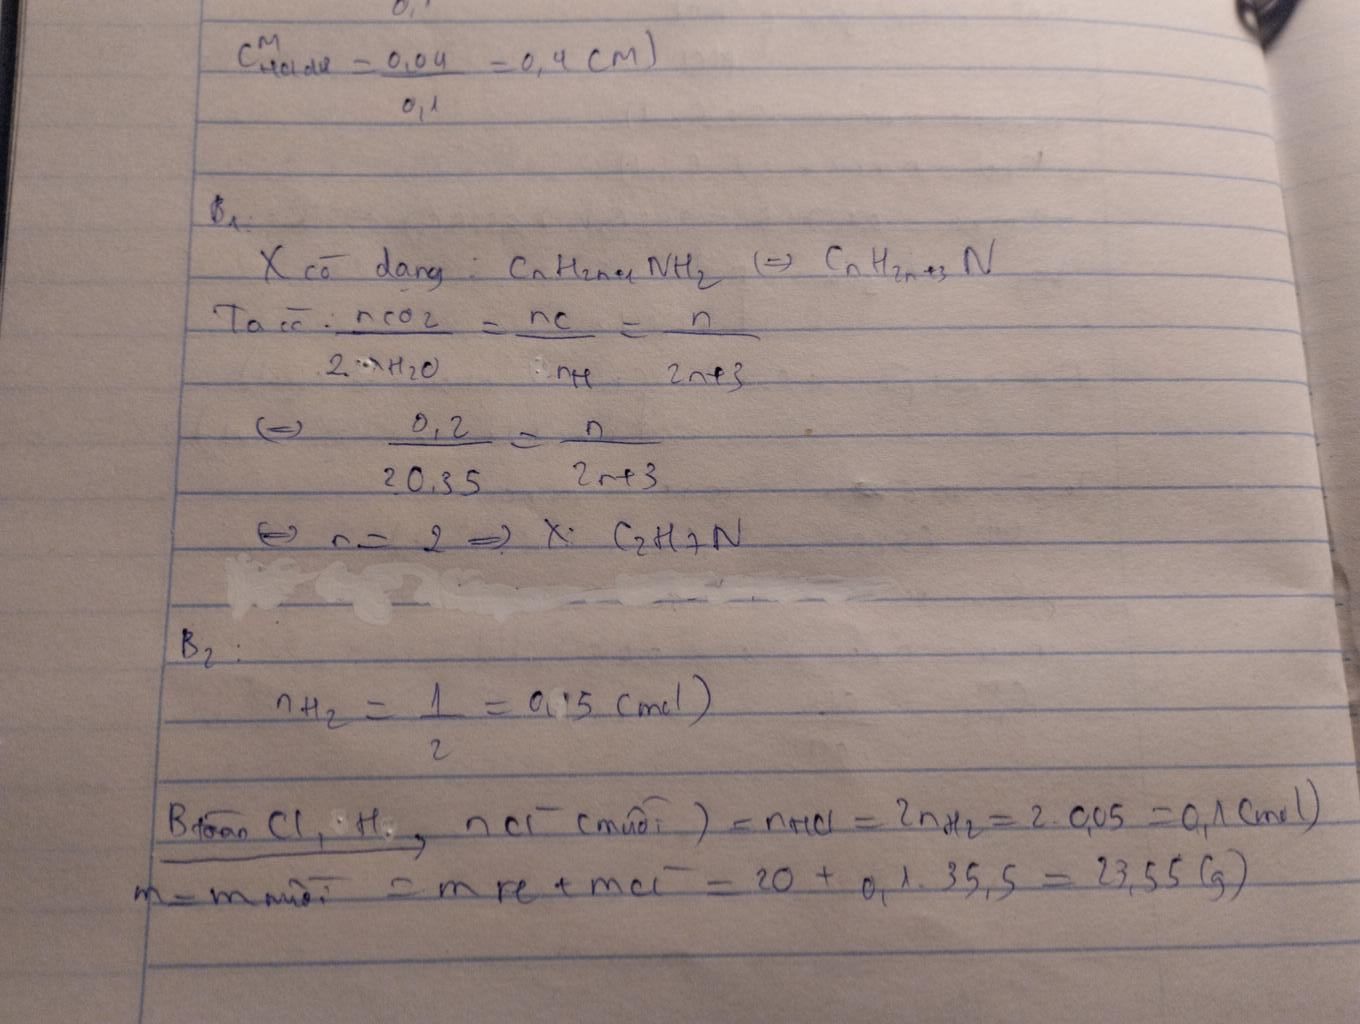 = 0,04 = 0,4 (M)
0,1
B1:
X có dạng : CnH2n+1NH2 (=) CnH2n+3N
Ta có : nCO2 = nC = n
2.nH2O nH 2n+3
(=) 0,2 = n
2 0,35 2n+3
(=) n = 2 => X: C2H7N
B2 :
nH2 = 1 = (mol)
2
Btoàn Cl, H, nCl⁻ (muối) = nHCl = 2nH2 = 2.0,05 = 0,1 (mol)
m = m muối = m + mCl⁻ = 20 + 0,1.35,5 = 23,55 (g)